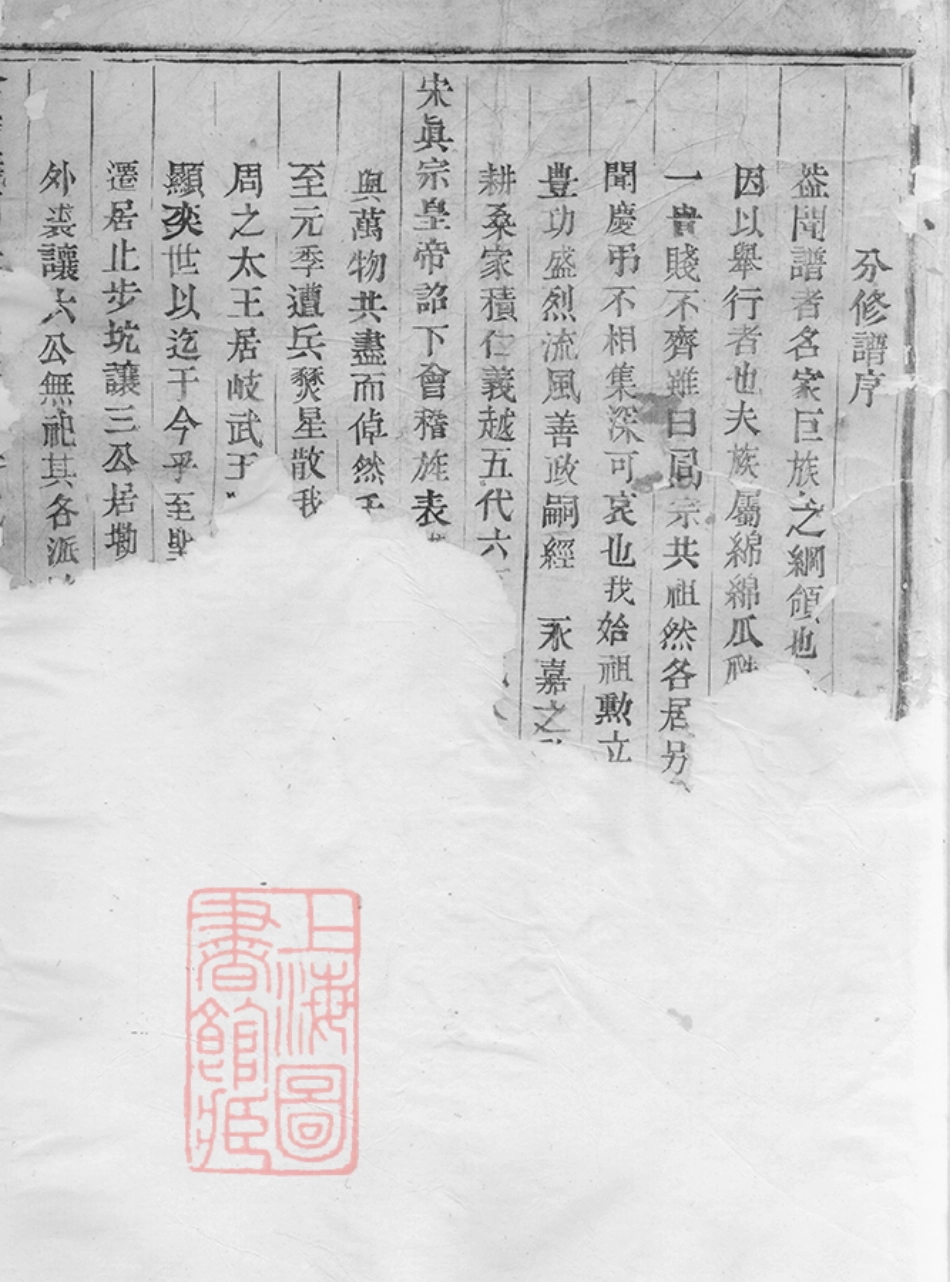 分修譜序
蓋聞譜者名家巨族之綱領也
因以舉行者也夫族屬綿綿瓜
一貴賤不齊雖曰同宗共祖然各居另
聞慶弔不相集深可哀也我始祖勲立
豊功盛烈流風善政嗣經 永嘉之
耕桑家積仁義越五代六
宋眞宗皇帝詔下會稽旌表
與萬物共盡而倬然
至元季遭兵燹星散我
周之太王居岐武王
顯奕世以迄于今乎至聖
遷居止步坑讓三公居墈
外裘讓六公無祀其各派
上海圖書館藏